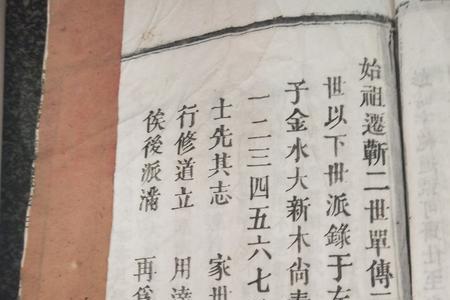 始祖遷蘄二世單傳
世以下世派錄于左
子金水大新木尙
一二三四五六七
士先其志 家世
行修道立 用達
俟後派滿 再